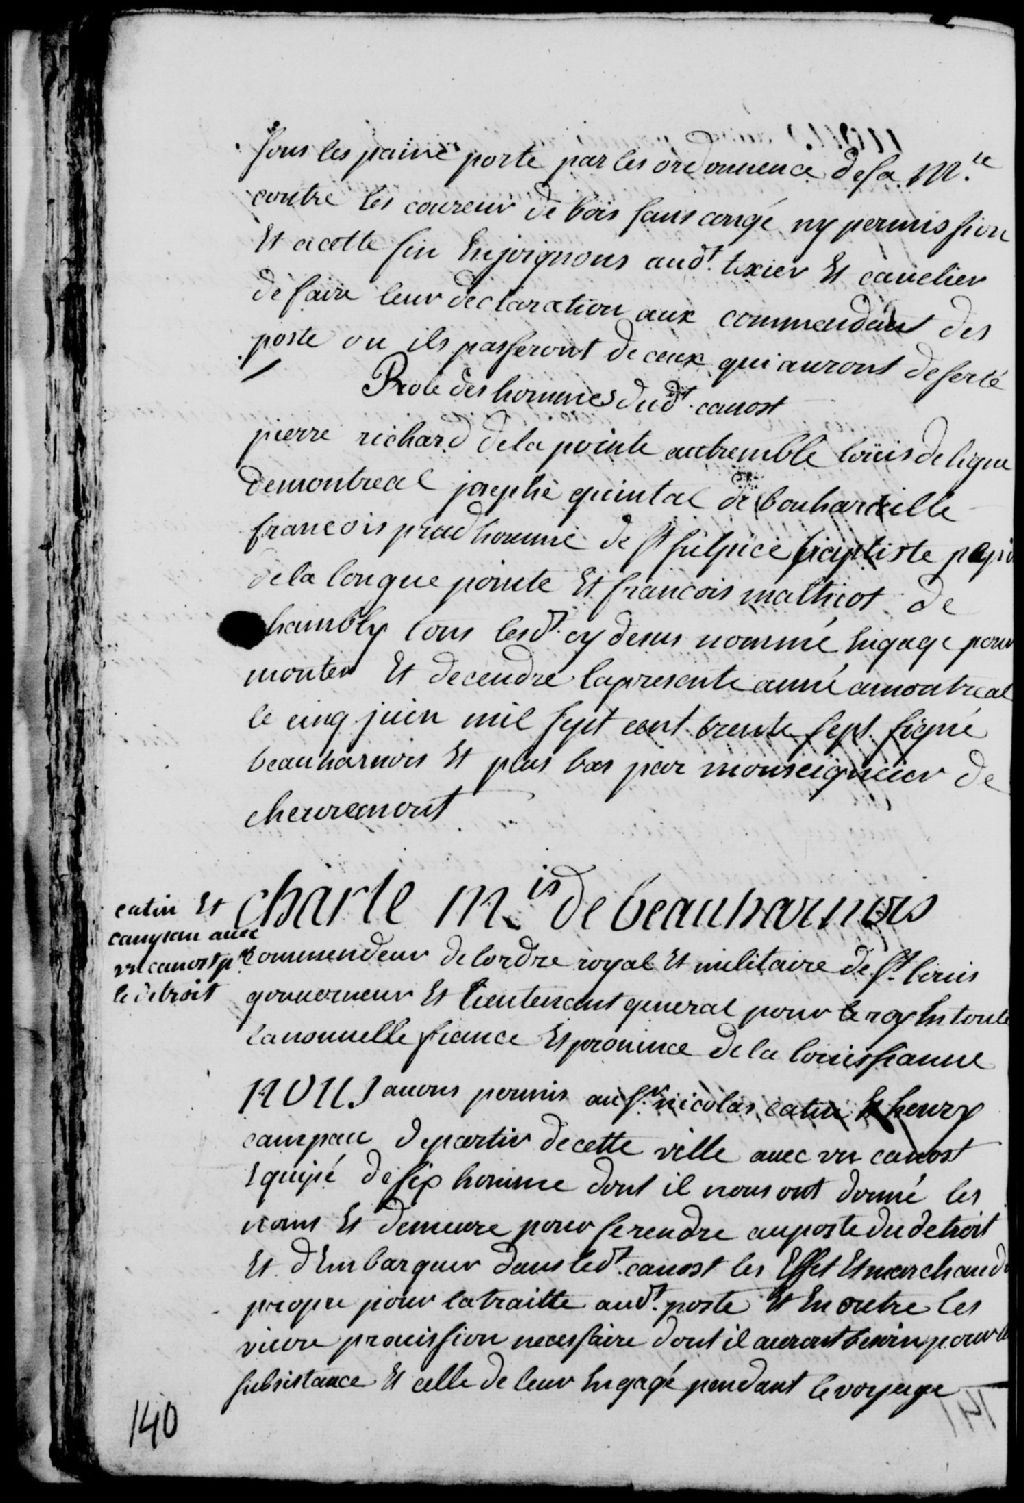 sous les paine porte par les ordonnence de sa M.te
contre les coureur de bois sans congé ny permission
Et a cette fin Enjoignons aud.t texier Et cavelier
de faire leur declaration aux commendant des
poste ou ils passeront de ceux qui auront deserté
Role des hommes dud.t canost
pierre richard de la pointe autremble loüis deligne
de montreal josephe quintal de bouharville
francois prudhomme de st sulpice baptiste
de la longue pointe Et francois mathiot de
chambly tous lesd.t cy desus nommé Engage pour
monter Et decendre la presente anné a montreal
le cinq juin mil sept cent trente sept signé
beauharnois Et plus bas par monseigneur de
chevremont
catin Et
campeau avec
un canost p.r
le detroit
charle M.is de beauharnois
commendeur de lordre royal Et militaire de st louis
gouverneur Et lieutenant general pour le roy En toute
la nouvelle france Et province de la louissianne
NOUS avons permis au s.r nicolas catin Et henry
campau de partir de cette ville avec un canost
Equipé de six homme dont il nous ont donné les
noms Et demeure pour se rendre au poste du detroit
Et d'Embarquer dans led.t canost les Effet Et marchandi
propre pour la traitte aud.t poste Et En outre les
vivre provission necessaire dont il auront besoin pour le
subsistance Et celle de leur Engagé pendant le voyage
140